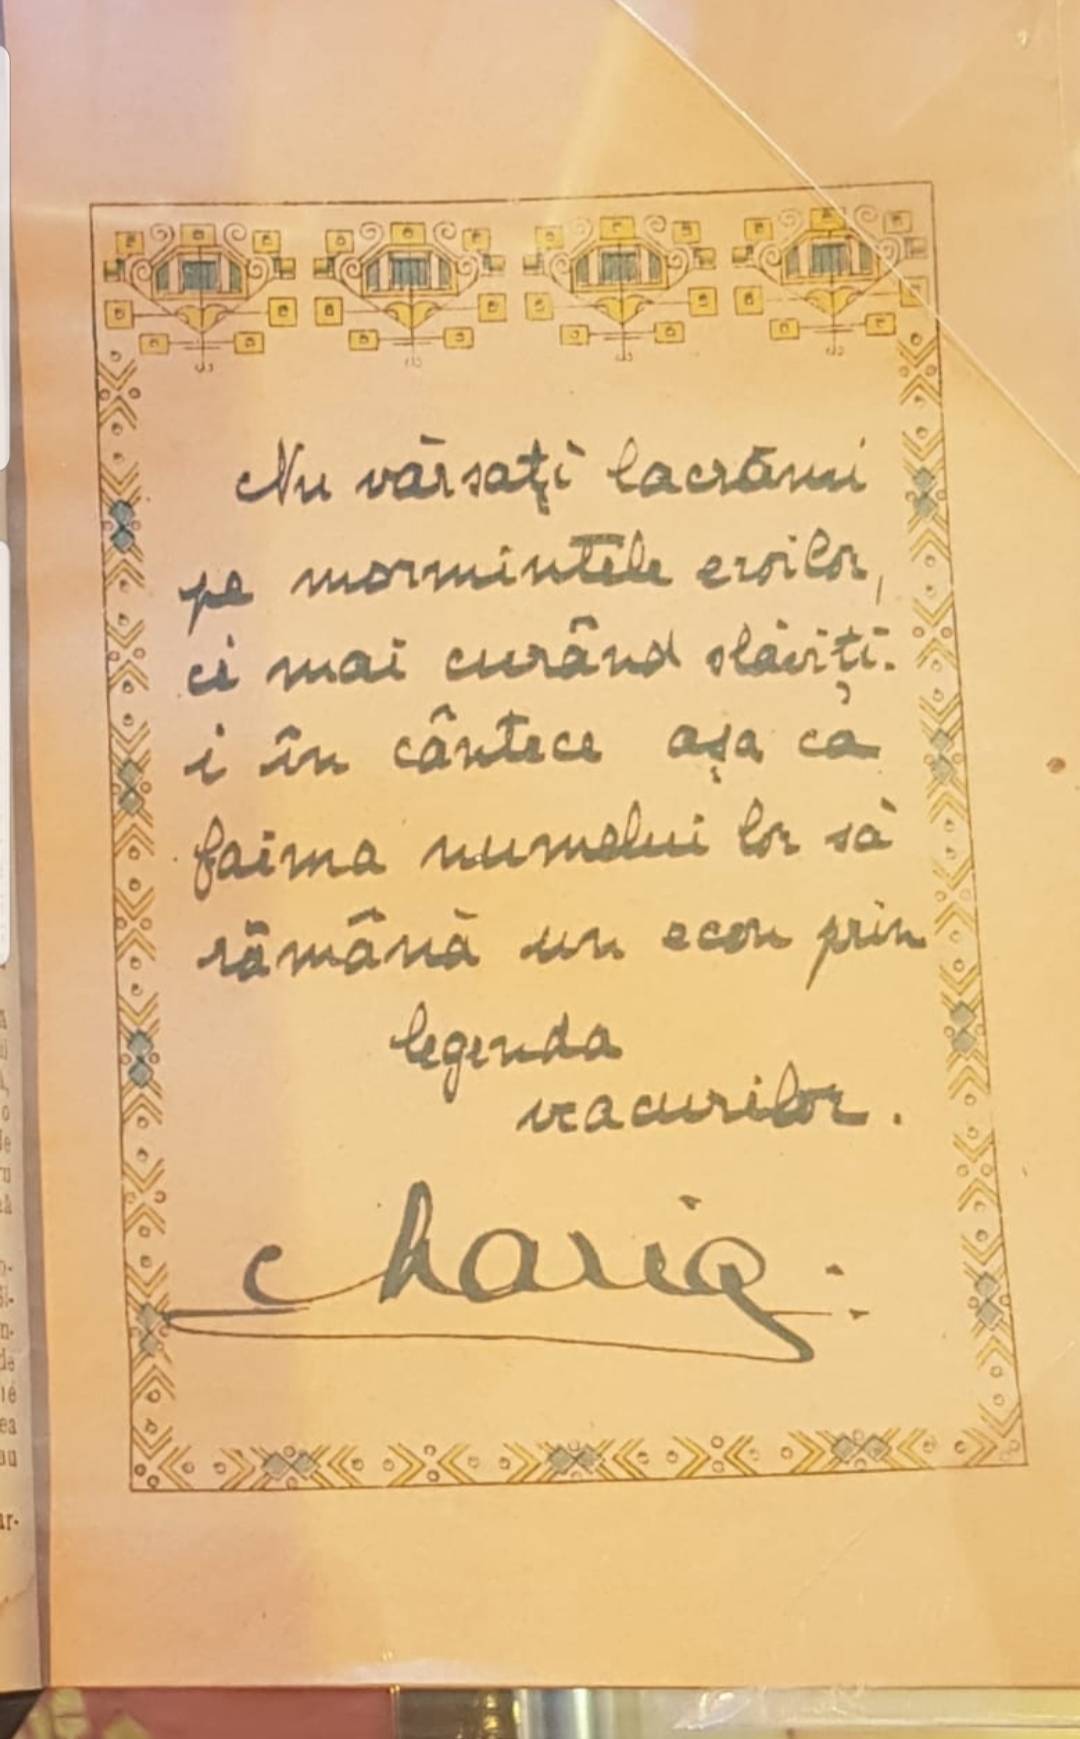 Nu vărsați lacrămi
pe mormintele eroilor,
ci mai curând slăviți-
i în cântece așa ca
faima numelui lor să
rămână un ecou prin
legenda
veacurilor.
Maria